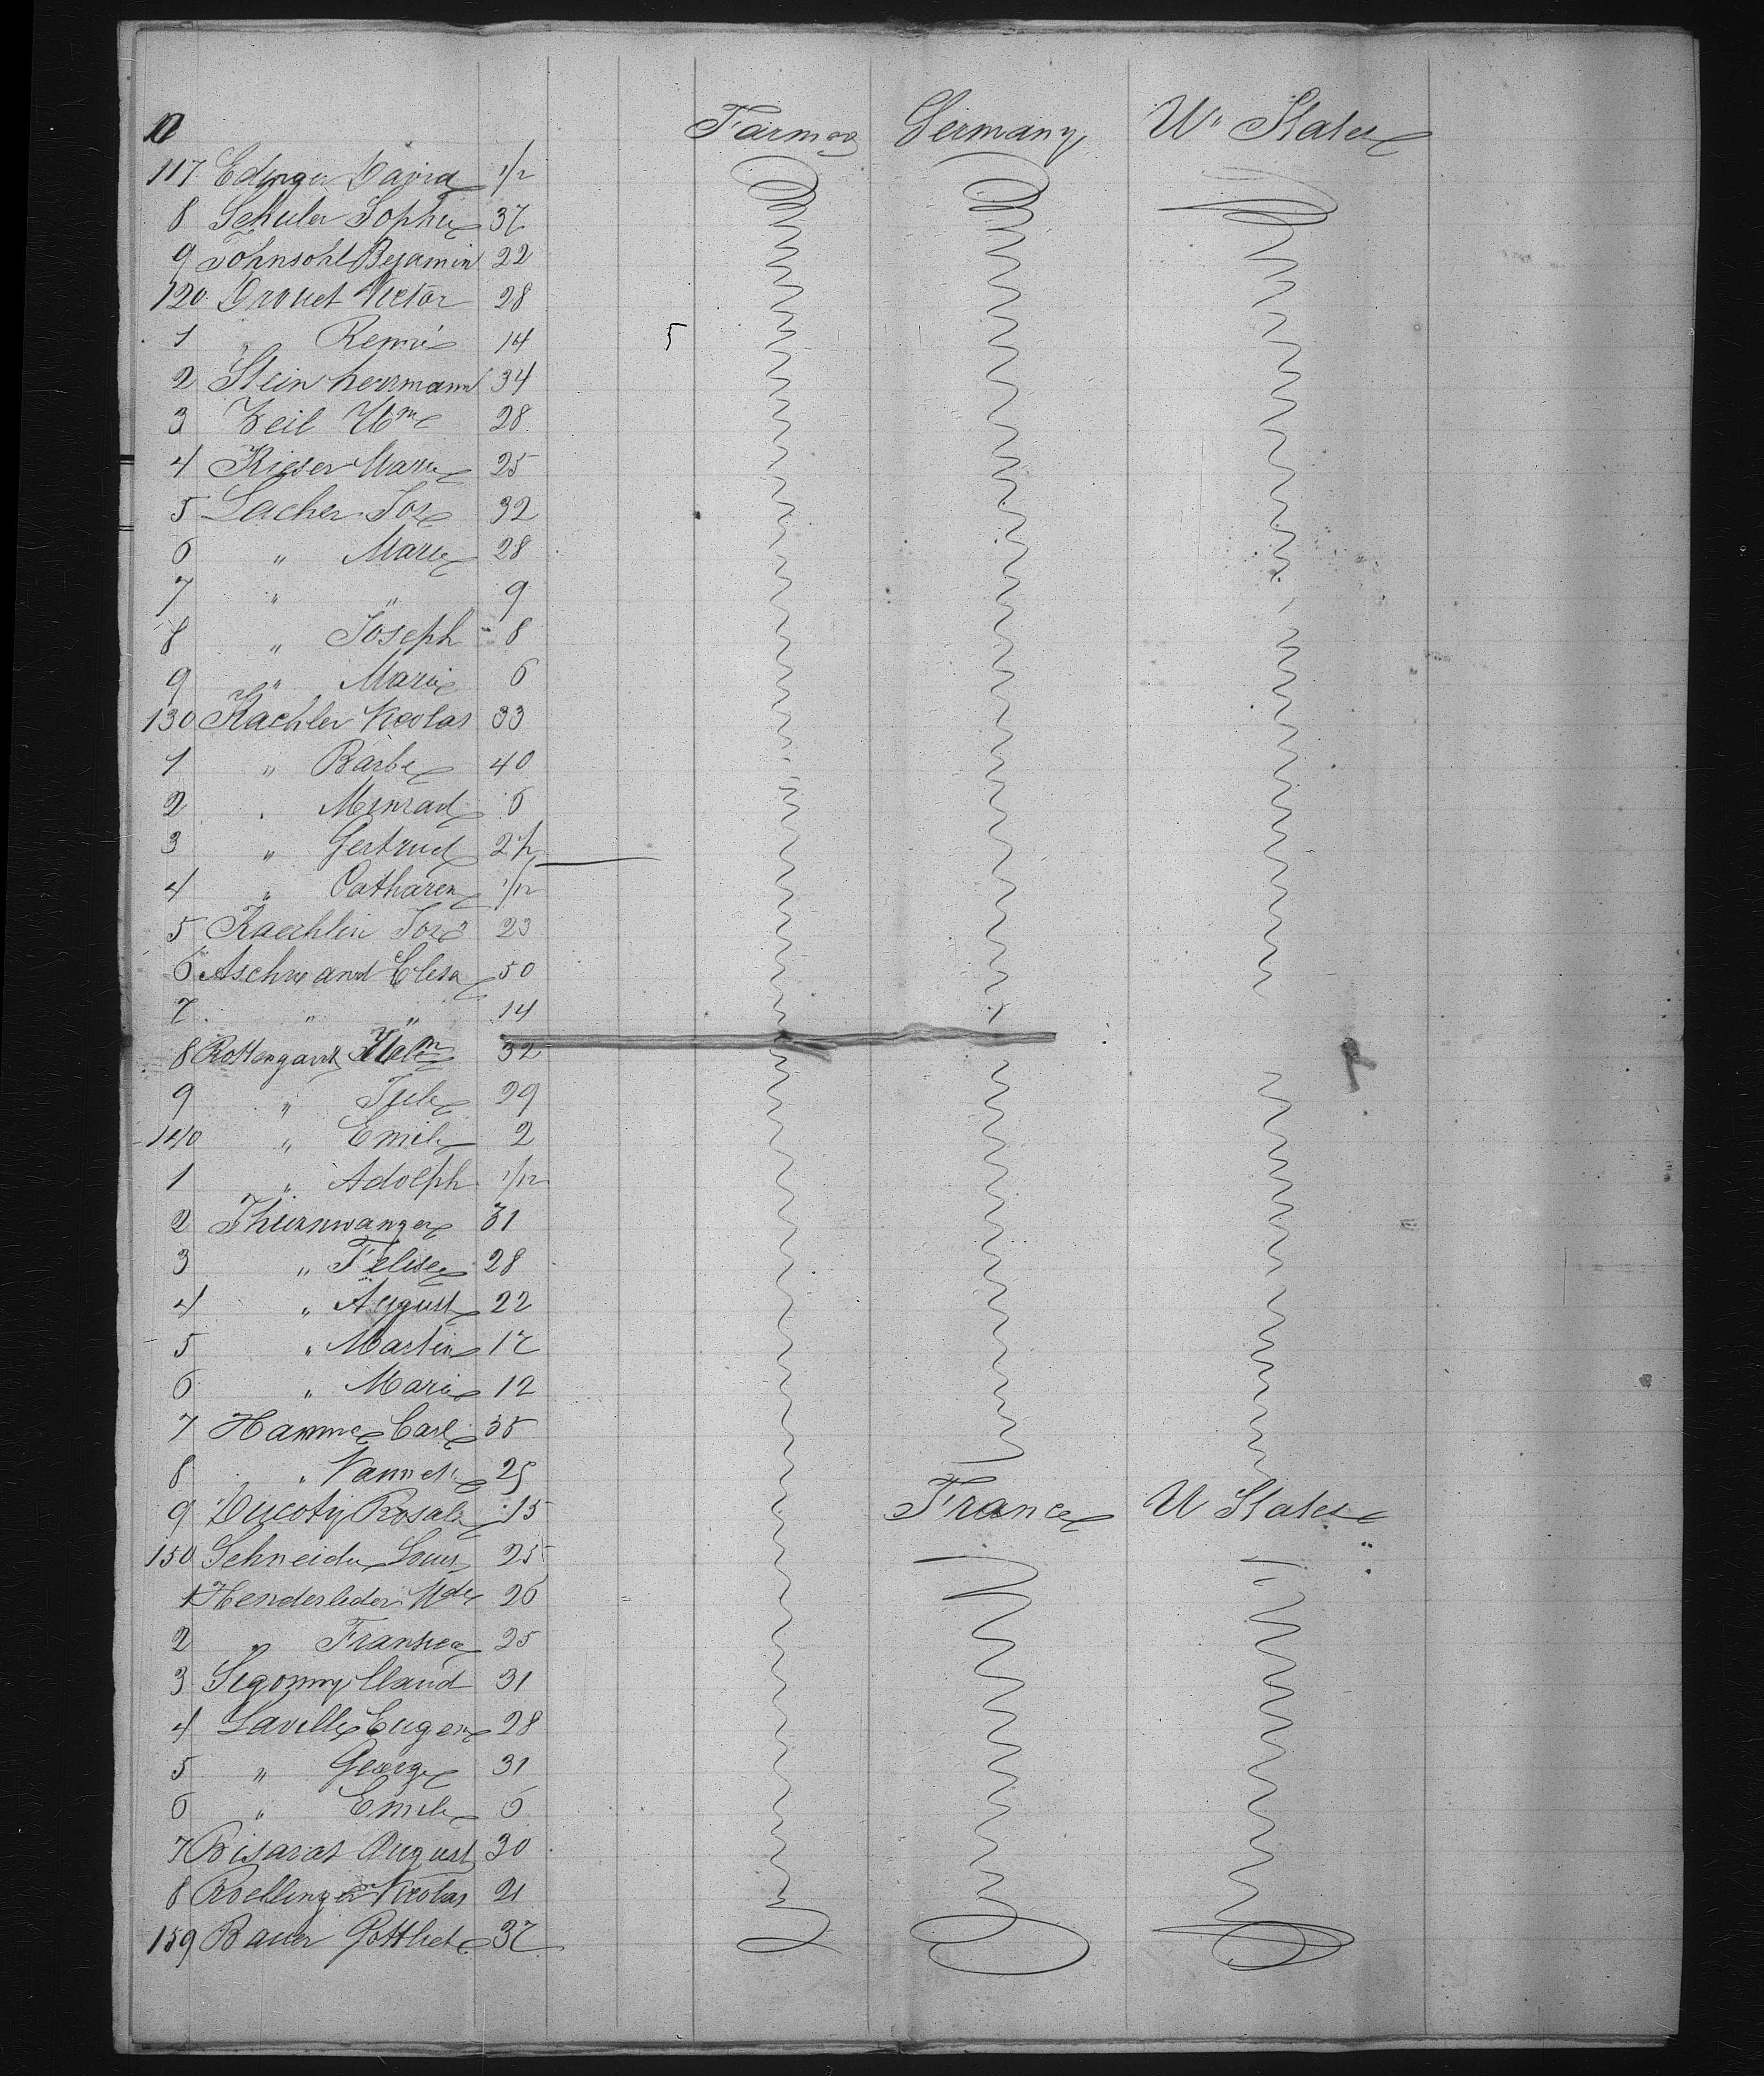 Farmer Germany U. States
117 Edinger David 1/2
8 Schuler Sophie 37
9 Johnsohl Bejamin 22
120 Drouet Victor 28
1 " Remie 14 5
2 Stein herrmann 34
3 Keil Wm 28
4 Kieser Marie 25
5 Lacher Jos 32
6 " Marie 28
7 " " 9
8 " Joseph 8
9 " Marie 6
130 Kachler Nicolas 33
1 " Barbe 40
2 " Meinrad 6
3 " Gertrud 2 1/2
4 " Catharen 1/12
5 Kaechlin Jos 23
6 Aschwand Elesa 50
7 " " 14
8 Rottengard 32
9 " Julie 29
140 " Emile 2
1 " Adolph 1/12
2 Thurnwanger 31
3 " Felise 28
4 " August 22
5 " Martin 17
6 " Marie 12
7 Hamme Carl 35
8 " 25
9 Ducoty Rosale 15 France U States
150 Schneider Louis 25
1 Henderleder Mde 26
2 " 25
3 Segonny Claud 31
4 Laville Eugene 28
5 " George 31
6 " Emile 6
7 Bisarat August 30
8 Roellinger Nicolas 21
159 Bauer Gottlieb 37